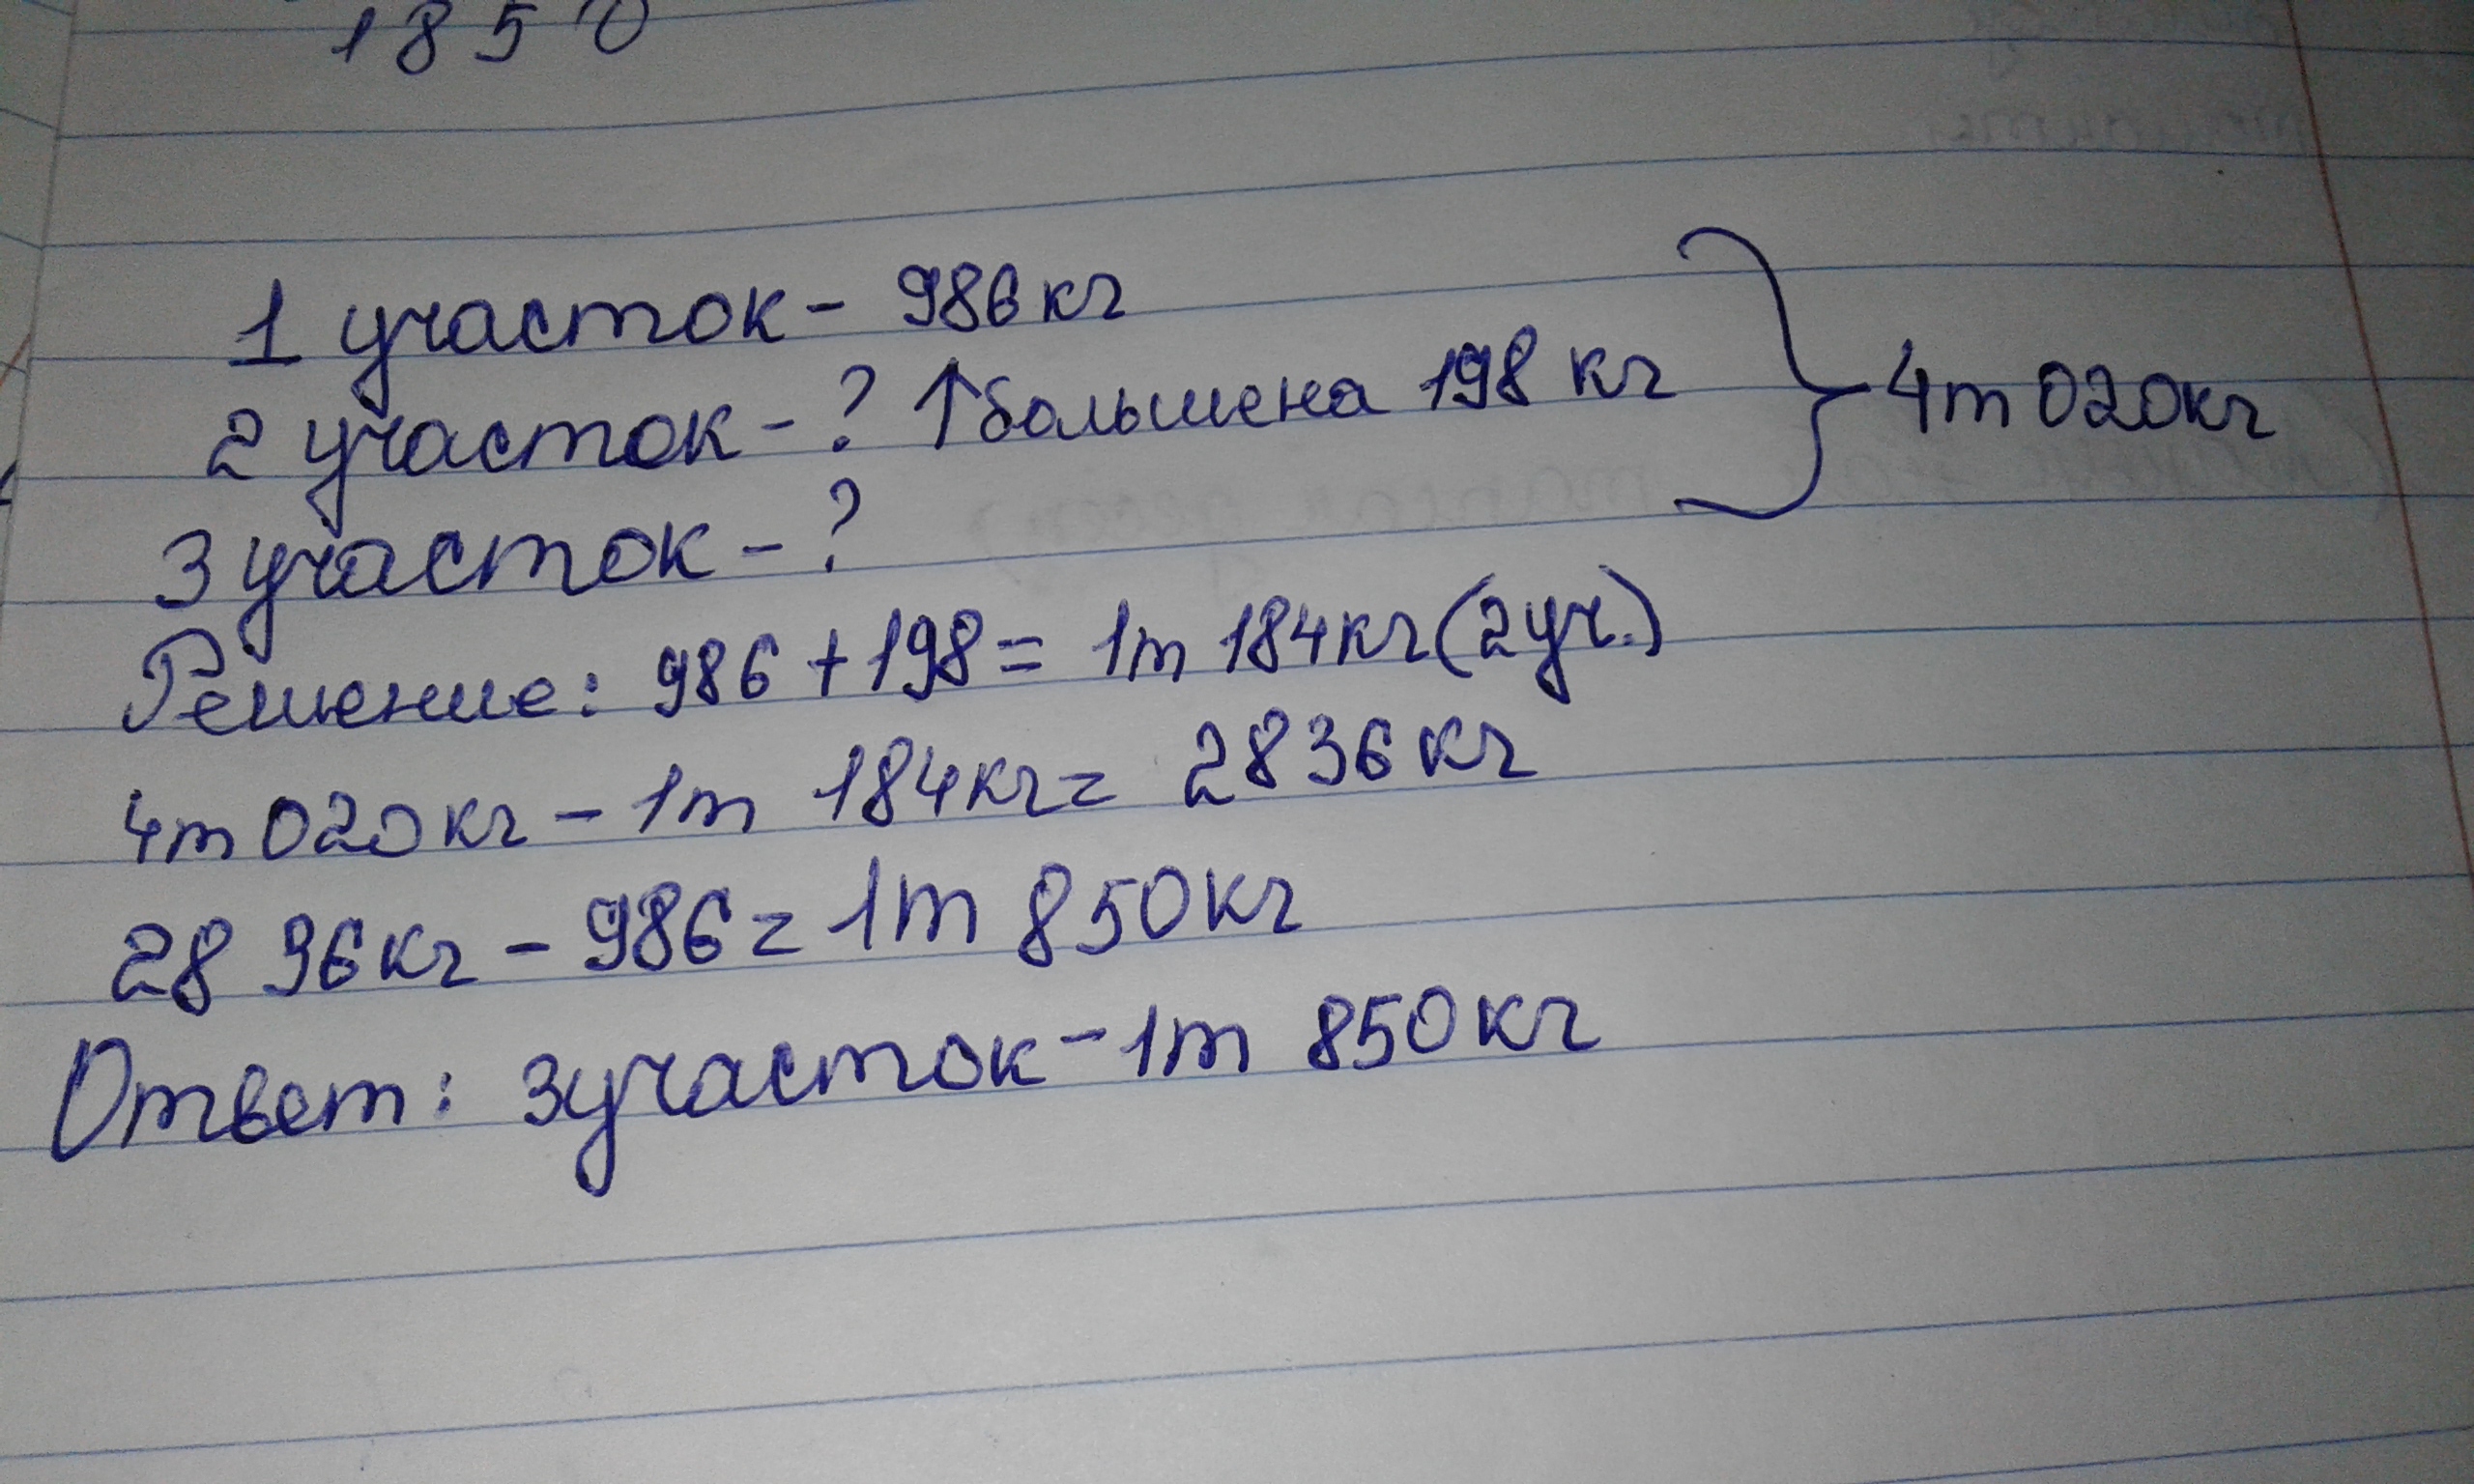 1850
1 участок - 986 кг
2 участок - ? ↑ большена 198 кг } 4т 020кг
3 участок - ?
Решение: 986 + 198 = 1т 184кг (2уч.)
4т 020кг - 1т 184кг = 2836 кг
28 36кг - 986 = 1т 850кг
Ответ: 3участок - 1т 850кг